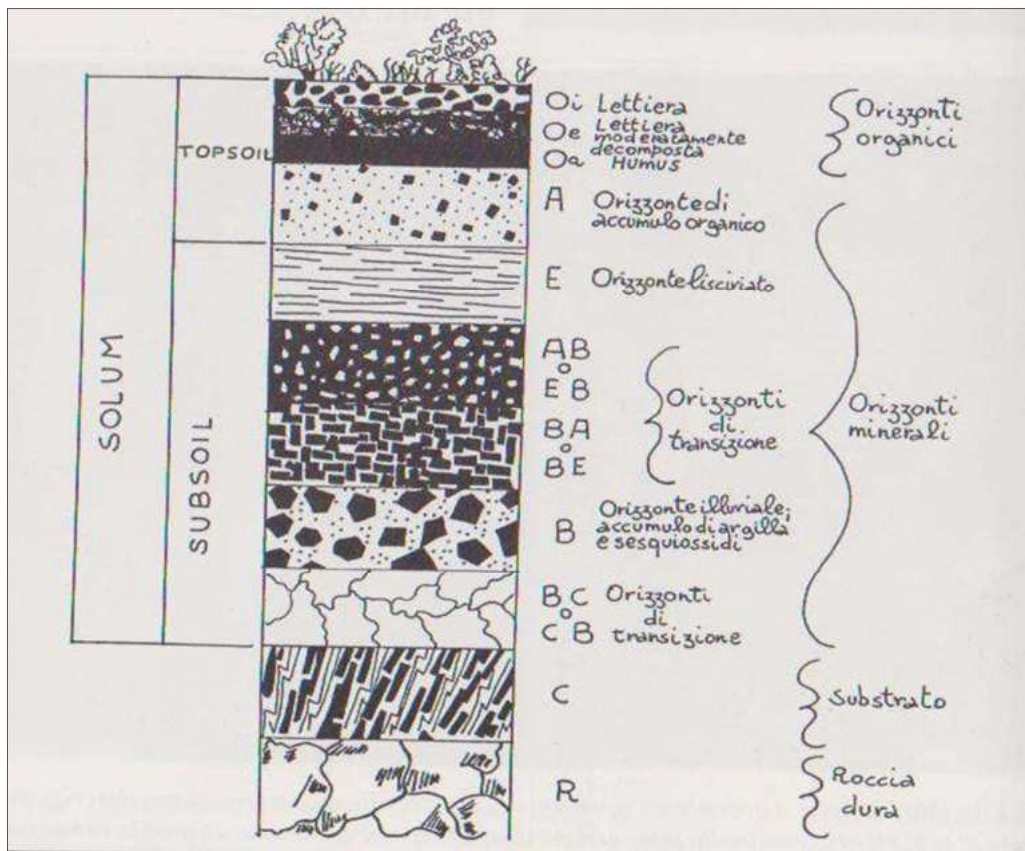 SOLUM
TOPSOIL
SUBSOIL
Oi Lettiera
Oe Lettiera
moderatamente
decomposta
Oa Humus
A Orizzonte di
accumulo organico
E Orizzonte lisciviato
AB
o
EB
BA
o
BE
Orizzonti
di
transizione
B Orizzonte illuviale;
accumulo di argilla
e sesquiossidi
BC
o
CB
Orizzonti
di
transizione
C
R
Orizzonti
organici
Orizzonti
minerali
Substrato
Roccia
dura